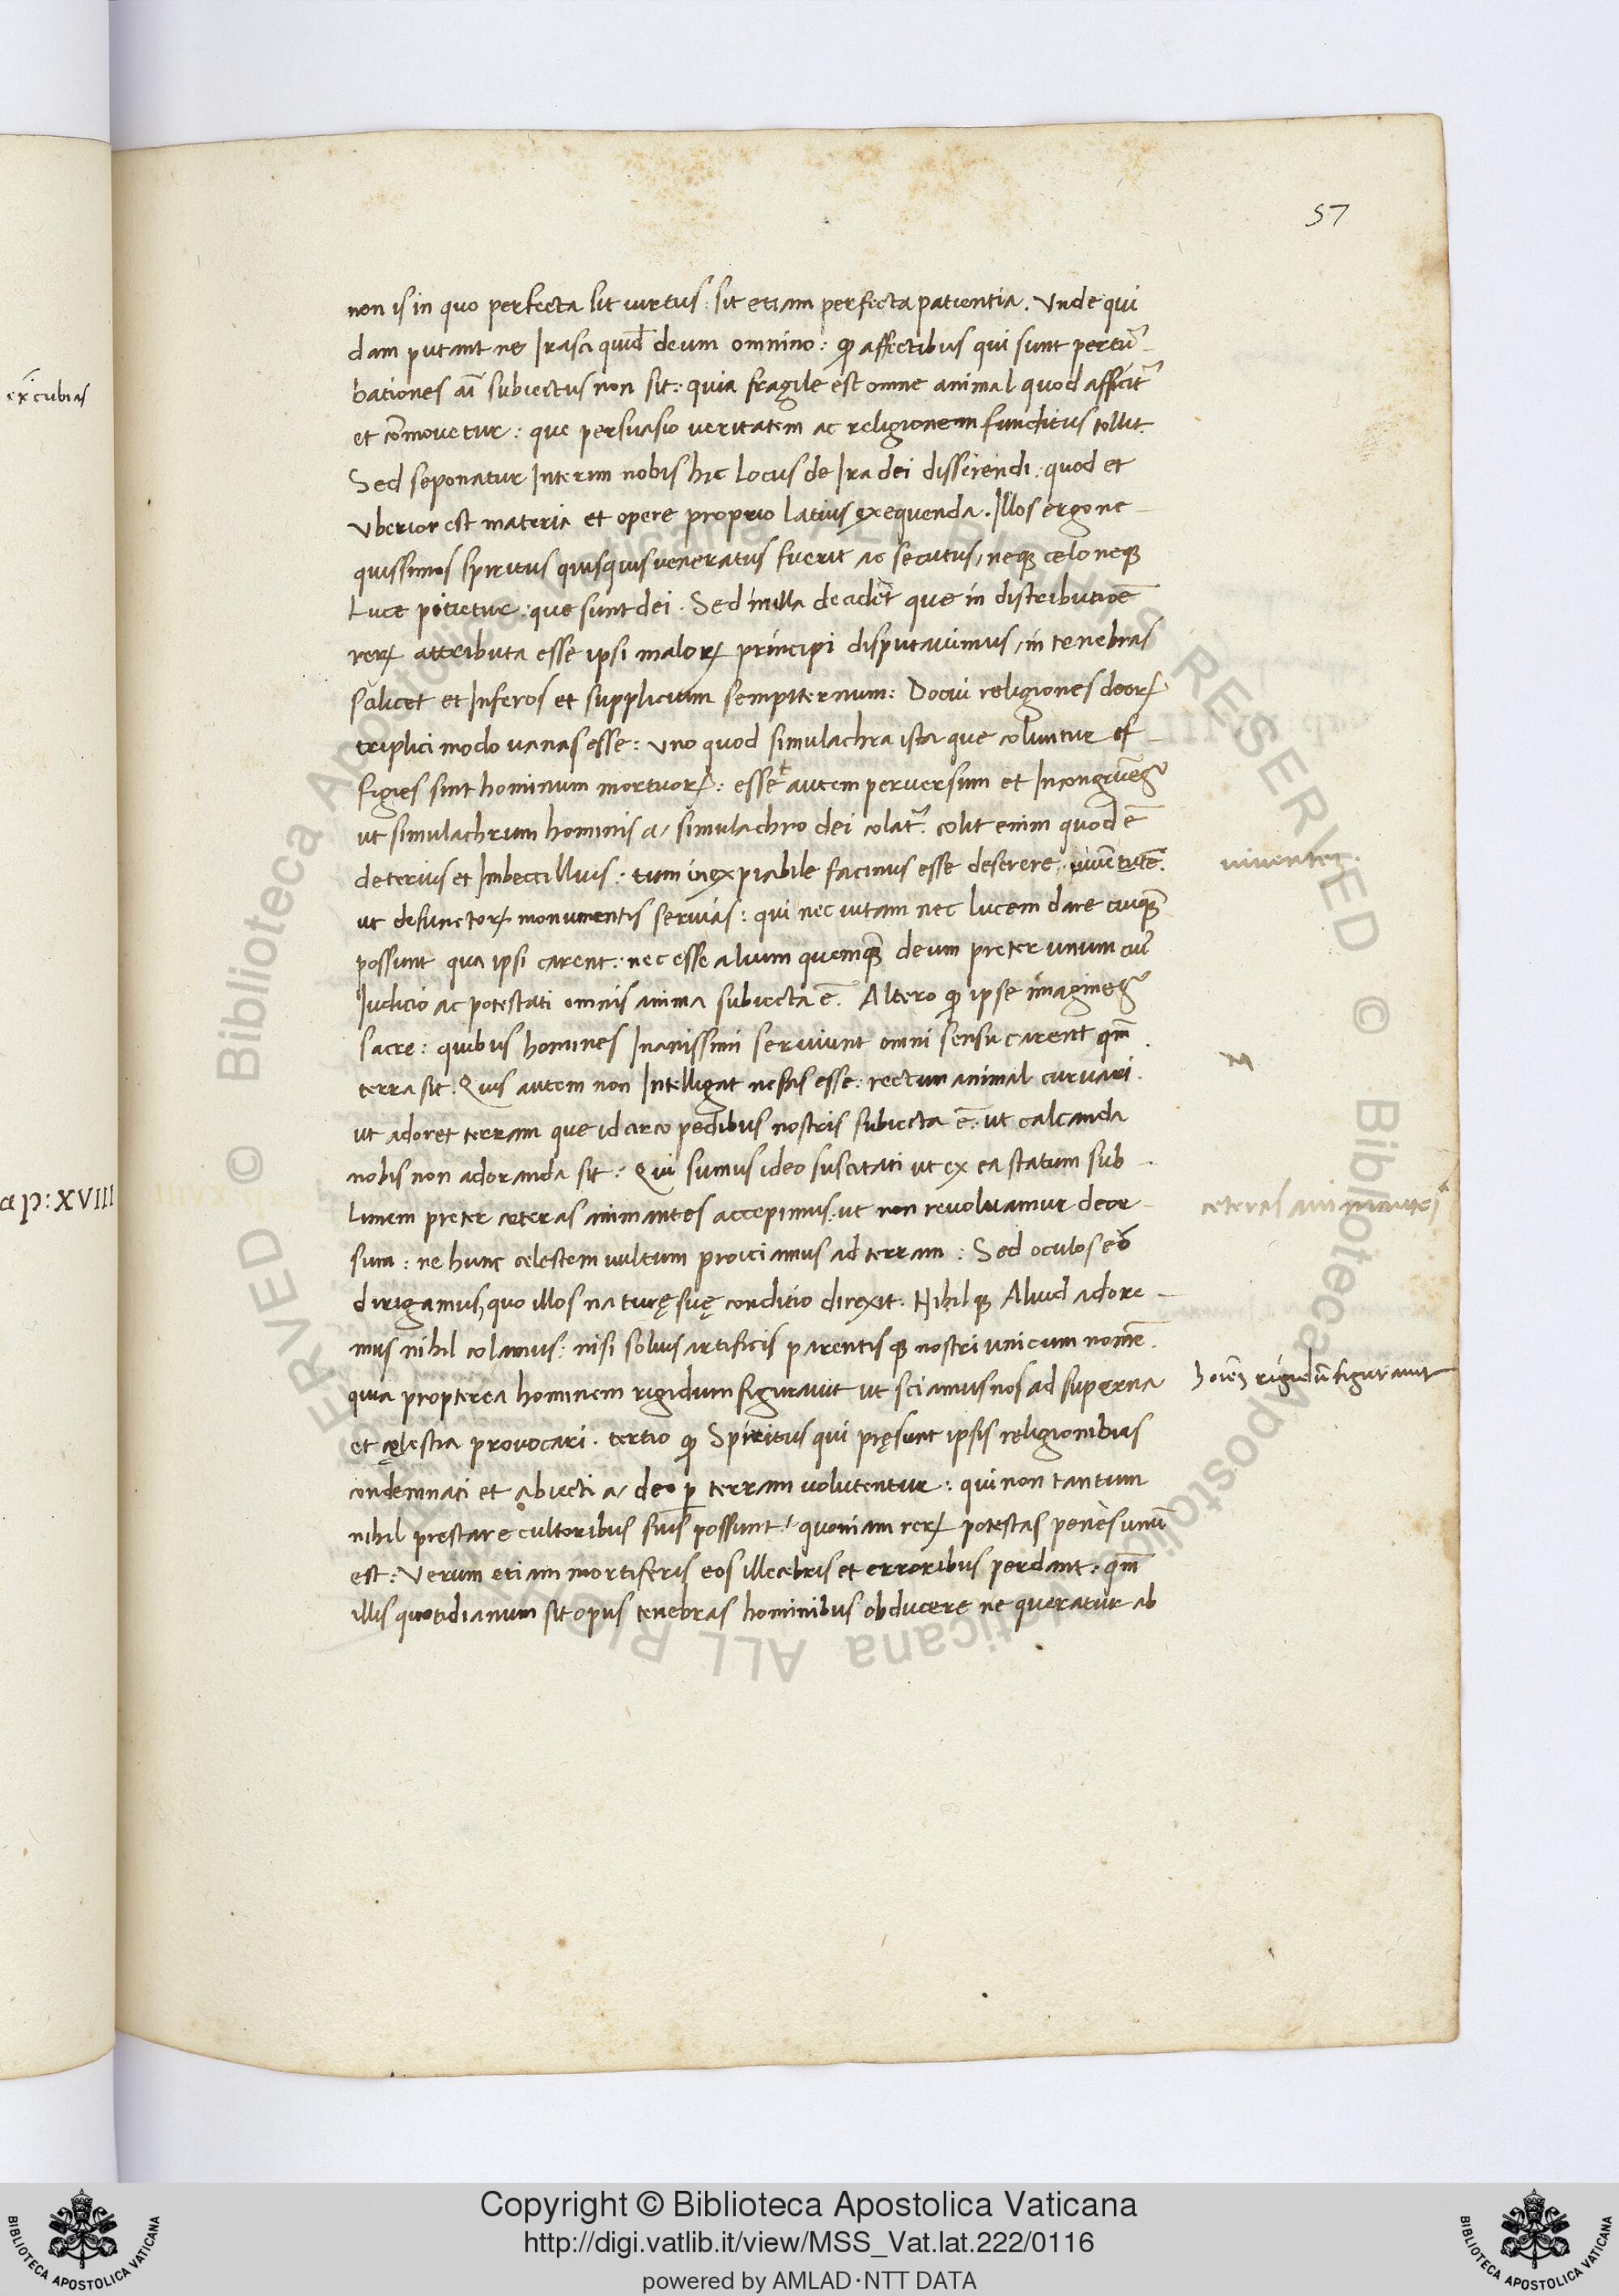 57
non is in quo perfecta sit uirtus : sit etiam perfecta patientia . Vnde qui
dam putant ne Irasci quid̄ deum omnino : ꝙ affectibus qui sunt pertur̃
bationes ai͞ subiectus non sit : quia fragile est omne animal quod afficit᷑
et com̄ouetur : que persuasio ueritatem ac religionem funditus tollit .
Sed seponatur Interim nobis hic locus de Ira dei disserendi : quod et
Vberior est materia et opere proprio latius exequenda . Illos ergo ne
quissimos spiritus quisquis ueneratus fuerit ac secutus / neqꝫ celo neqꝫ
Luce potietur : que sunt dei . Sed in illa decidet que in distributiōe
rerꝝ attributa esse ipsi malorꝝ principi disputauimus / in tenebras
scilicet et Inferos et supplicium sempiternum : Docui religiones deorꝝ
triplici modo uanas esse : uno quod simulachra ista que coluntur ef
figies sint hominum mortuorꝝ : esse autem peruersum et Incongruēs
ut simulachrum hominis a / simulachro dei colat᷑ : colit enim quod ē
deterius et Imbecillius : tum inexpiabile facinus esse deserere uiuentē .
ut defunctorꝝ monumentis seruias : qui nec uitam nec lucem dare cuiqꝫ̄
possunt qua ipsi carent : nec esse alium quemqꝫ̄ deum preter unum cui᷑
Iudicio ac potestati omnis anima subiecta ē . Altero ꝙ ipse imagines
sacre : quibus homines Inanissimi seruiunt omni sensu carent qm̄
terra sit . Quis autem non Intelligat nefas esse : rectum animal curuari .
ut adoret terram que idcirco pedibus nostris subiecta ē : ut calcanda
nobis non adoranda sit : Qui sumus ideo suscitati ut ex ea statum sub
limem preter ceteras animantes accepimus : ut non reuoluamur deor
sum : ne hunc celestem uultum proiciamus ad terram : Sed oculos eo
dirigamus, quo illos naturę suę conditio direxit . Nihilqꝫ Aliud adore
mus nihil colamus : nisi solius artificis parentisqꝫ nostri unicum nomē .
quia propterea hominem rigidum figurauit ut sciamus nos ad superna
et cęlestia prouocari . tertio ꝙ Spiritus qui pręsunt ipsis religionibus
condemnati et abiecti a / deo ꝑ terram uolutentur : qui non tantum
nihil prestare cultoribus suis possunt : quoniam rerꝝ potestas penes unum
est : Verum etiam mortiferis eos illecebris et erroribus perdant : qm̄
illis quotidianum sit opus tenebras hominibus obducere ne queratur ab
uiuentem .
ceteras animantes
hoīem rigidū figurauit
excubias
ap : XVIII
Copyright © Biblioteca Apostolica Vaticana
http://digi.vatlib.it/view/MSS_Vat.lat.222/0116
powered by AMLAD·NTT DATA
BIBLIOTECA APOSTOLICA VATICANA
BIBLIOTECA APOSTOLICA VATICANA